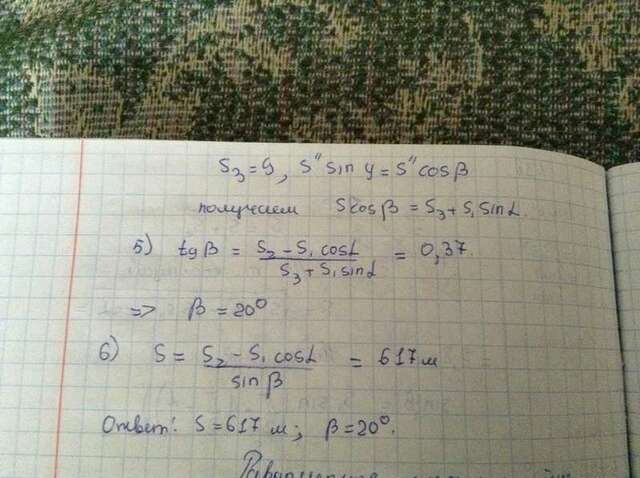 S₃=y, S" sin y = S" cosβ
получаем Scosβ = S₃+S₁ sinL.
5) tgβ = (S₂ - S₁ cosL)/(S₃ + S₁ sinL) = 0,37.
=> β = 20°
6) S = (S₂ - S₁ cosL)/(sinβ) = 617 м
Ответ: S=617 м; β=20°.